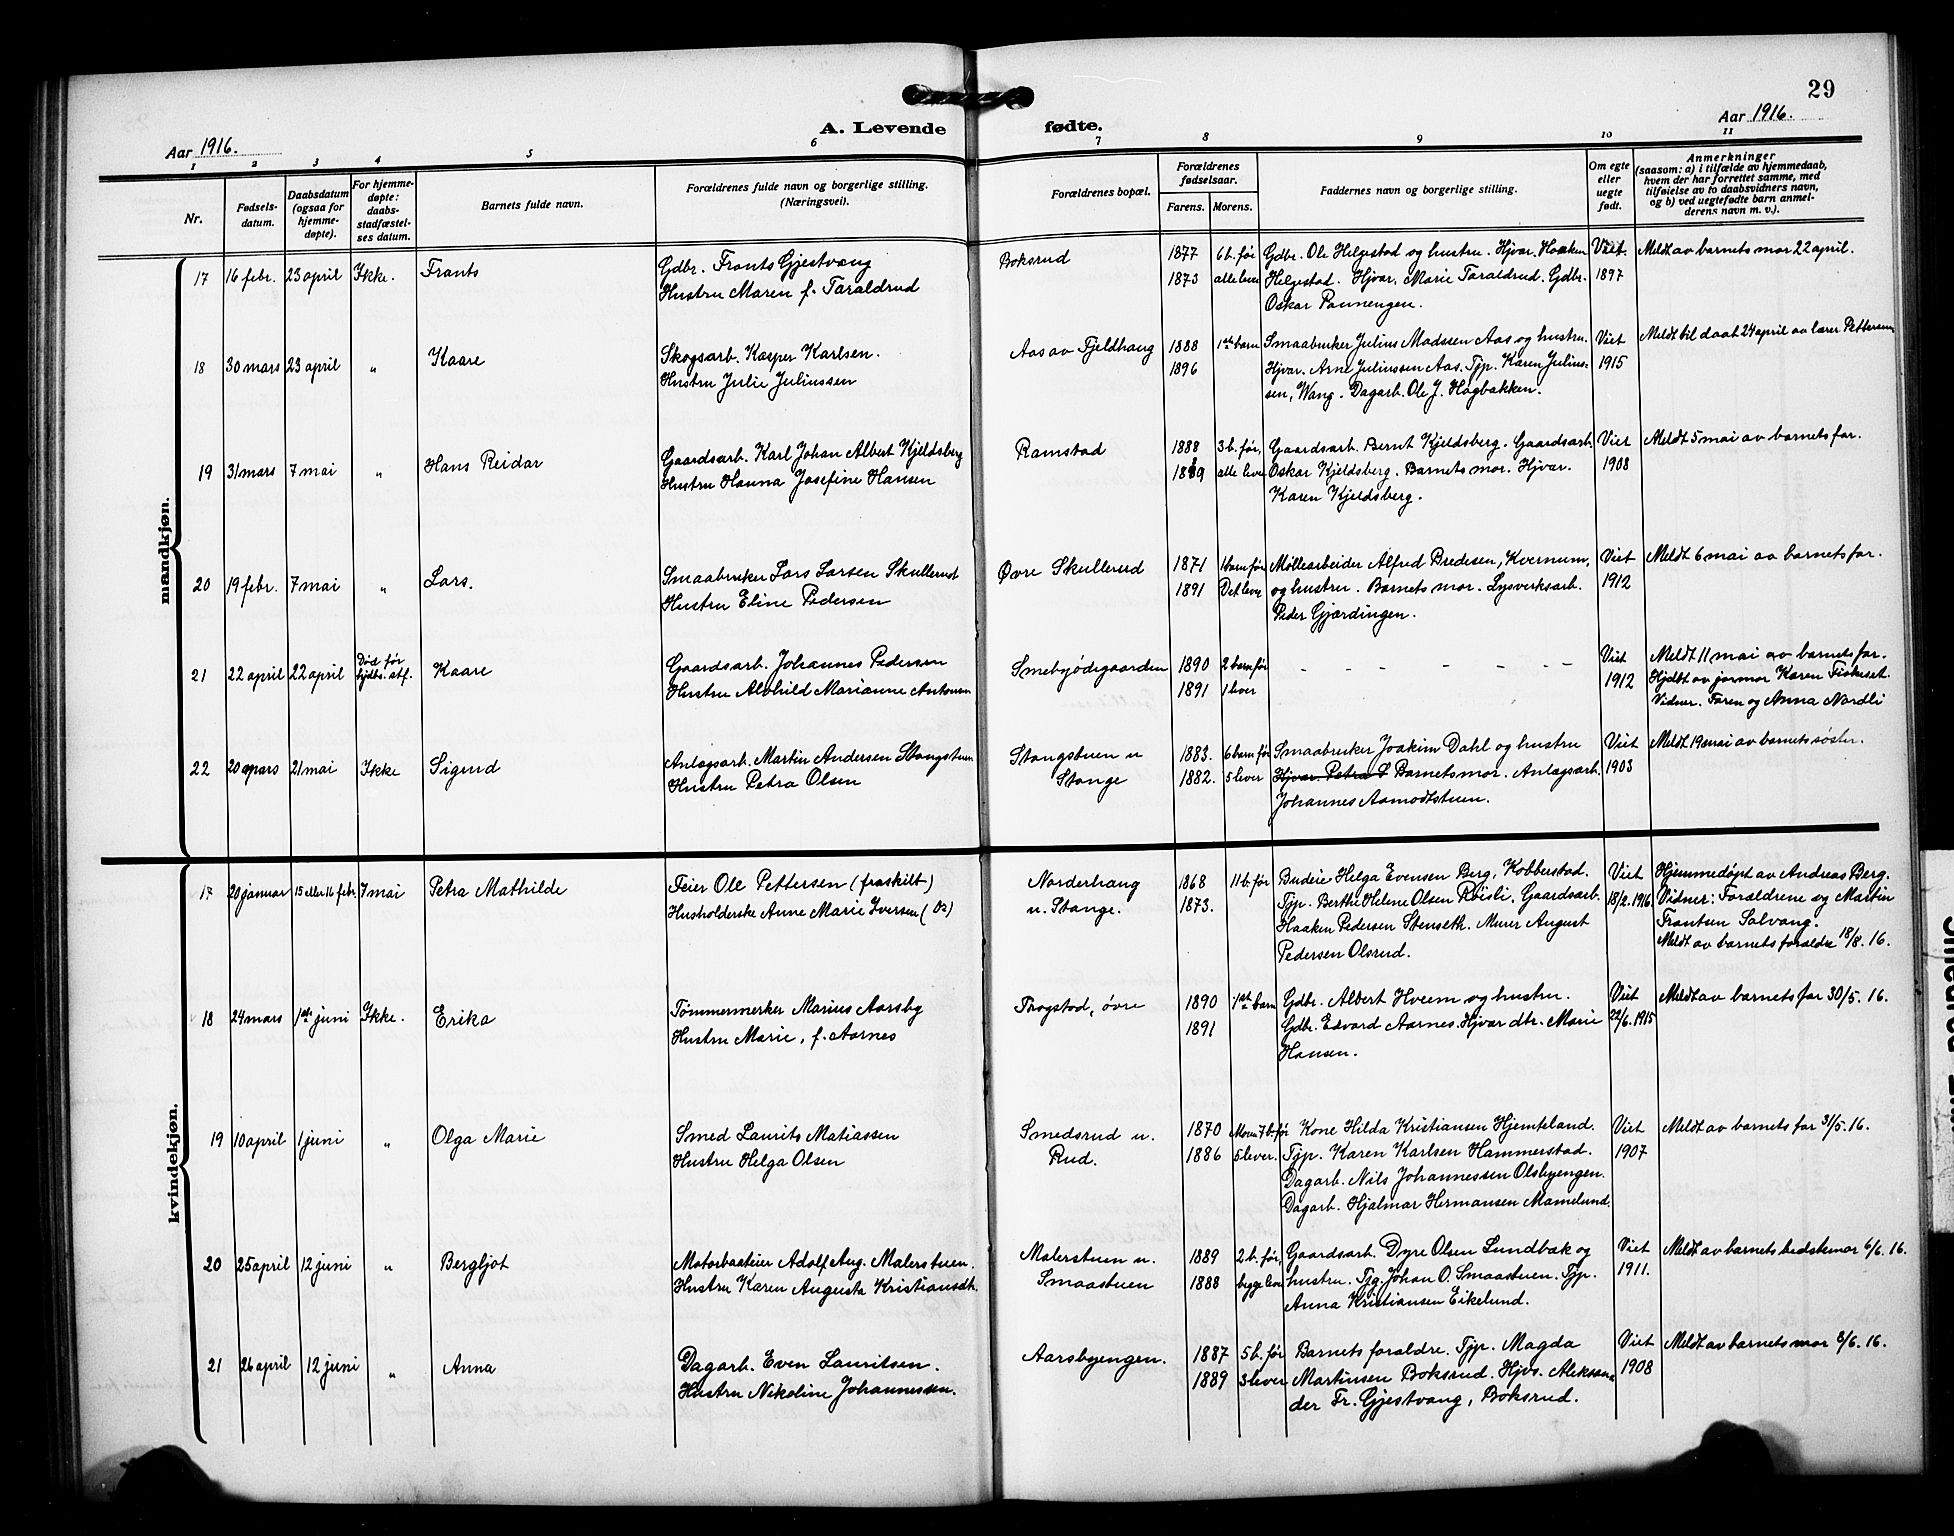 29
Aar 1916.
A. Levende fødte.
Aar 1916.
1 2 3 4 5 6 7 8 9 10 11
Nr.
Fødsels-
datum.
Daabsdatum
(ogsaa for
hjemme-
døpte).
For hjemme-
døpte:
daabs-
stadfæstel-
ses datum.
Barnets fulde navn.
Forældrenes fulde navn og borgerlige stilling.
(Næringsvei).
Forældrenes bopæl.
Forældrenes
fødselsaar.
Farens. Morens.
Faddernes navn og borgerlige stilling.
Om egte
eller
uegte
født.
Anmerkninger
(saasom: a) i tilfælde av hjemmedaab,
hvem der har forrettet samme, med
tilføielse av to daabsvidners navn,
og b) ved uegtefødte barn anmel-
derens navn m. v.).
mandkjøn.
17 16 febr. 23 april Ikke. Frants
Gdbr. Frants Gjestvang
Hustru Maren f. Taraldrud
Boksrud
1877 6 b. før
1873 alle leve
Gdbr. Ole Helgestad og hustru. Hjvar. Haaken
Helgestad. Hjvar. Marie Taraldrud. Gdbr.
Oskar Pannengen.
Viet.
1897
Meldt av barnets mor 22 april.
18 30 mars 23 april " Kaare
Skogsarb. Kasper Karlsen.
Hustru Julie Juliussen
Aas av Fjeldhaug
1888 1ste barn
1896
Smaabruker Julius Madssen Aas og hustru.
Hjvar. Arne Juliussen Aas. Tjp. Karen Julius-
sen, Wang. Dagarb. Ole J. Hagbakken.
Viet
1915
Meldt til daab 24 april av lærer Pettersen
19 31 mars 7 mai " Hans Reidar
Gaardsarb. Karl Johan Albert Kjeldsberg
Hustru Hanna Josefine Hansen
Ramstad
1888 3 b. før,
1889 alle leve
Gaardsarb. Bernt Kjeldsberg. Gaardsarb.
Oskar Kjeldsberg. Barnets mor. Hjvar.
Karen Kjeldsberg.
Viet
1908
Meldt 5 mai av barnets far.
20 19 febr. 7 mai " Lars.
Smaabruker Lars Larsen Skullerud
Hustru Eline Pedersen
Øvre Skullerud
1871 1 barn før
1891 Det leve
Møllearbeider Alfred Bredesen, Kvernum,
og hustru. Barnets mor. Lysverksarb.
Peder Gjærdingen.
Viet
1912
Meldt 6 mai av barnets far.
21 22 april 22 april Død før
hjdbs. stf. Kaare
Gaardsarb. Johannes Pedersen
Hustru Alvhild Marianne Antonsen
Smebyødegaarden
1890 2 barn før
1891 1 lever
- - - - - - -
Viet
1912
Meldt 11 mai av barnets far.
Hjdbt av jormor Karen Fiskeset.
Vidner. Faren og Anna Nordli
22 20 mars 21 mai Ikke Sigurd
Anlægsarb. Martin Andersen Stangstuen
Hustru Petra Olsen
Stangstuen u
Stange
1883. 6 barn før
1882. 5 lever
Smaabruker Joakim Dahl og hustru
Hjvar. Petra S Barnets mor. Anlægsarb.
Johannes Aamodtstuen.
Viet
1903
Meldt 19 mai av barnets søster.
kvindekjøn.
17 20 januar 15 eller 16 febr. 7 mai Petra Mathilde
Feier Ole Pettersen (fraskilt)
Husholderske Anne Marie Iversen (do)
Norderhaug
u. Stange.
1868 11 b. før
1873.
Budeie Helga Evensen Berg, Kobberstad.
Tjp. Berthe Helene Olsen Røisli, Gaardsarb.
Haaken Pedersen Stenseth. Murer August
Pedersen Olsrud.
Viet
18/2. 1916
Hjemmedøpt av Andreas Berg.
Vidner: Forældrene og Martin
Frantsen Solvang.
Meldt av barnets forældre 18/8. 16.
18 24 mars 1ste juni Ikke. Erika
Tømmermerker Marius Aarsby
Hustru Marie, f. Aarnes
Frogstad, øvre
1890 1ste barn
1891
Gdbr. Albert Hveem og hustru.
Gdbr. Edvard Aarnes. Hjvar dtr. Marie
Hansen.
Viet
22/6. 1915
Meldt av barnets far 30/5. 16.
19 10 april 1 juni " Olga Marie
Smed Laurits Matiassen
Hustru Helga Olsen
Smedsrud u.
Rud.
1870 Moren 7 b. før
1886 5 lever.
Kone Hilda Kristiansen Hjemteland.
Tjp. Karen Karlsen Hammerstad.
Dagarb. Nils Johannessen Olsbyengen.
Dagarb. Hjalmar Hermansen Mamelund.
Viet
1907
Meldt av barnets far 31/5. 16.
20 25 april 12 juni " Bergljot
Motorbaateier Adolf Aug. Malerstuen.
Hustru Karen Augusta Kristiansdt.
Malerstuen u.
Smaastuen
1889 2 b. før,
1888 begge leve
Gaardsarb. Dyre Olsen Lundbak og
hustru. Tjg. Johan O. Smaastuen. Tjp.
Anna Kristiansen Eikelund.
Viet
1911.
Meldt av barnets bedstemor 6/6. 16.
21 26 april 12 juni " Anna
Dagarb. Even Lauritsen.
Hustru Nikoline Johannessen.
Aarsbyengen.
1887 5 b. før
1889 3 lever
Barnets forældre. Tjp. Magda
Martinsen Boksrud. Hjvs. Aleksan-
der Fr. Gjestvang, Boksrud.
Viet
1908
Meldt av barnets mor 8/6. 16.